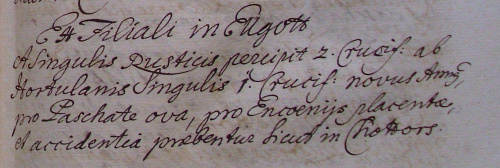 Ex Filiali in Lygott
A Singulis Rusticis percipit 2. Crucif: ab
Hortulanis Singulis 1. Crucif: novus Annus,
pro Paschate ova, pro Encoenijs placentæ,
et accidentia præbentur sicut in Chottors.